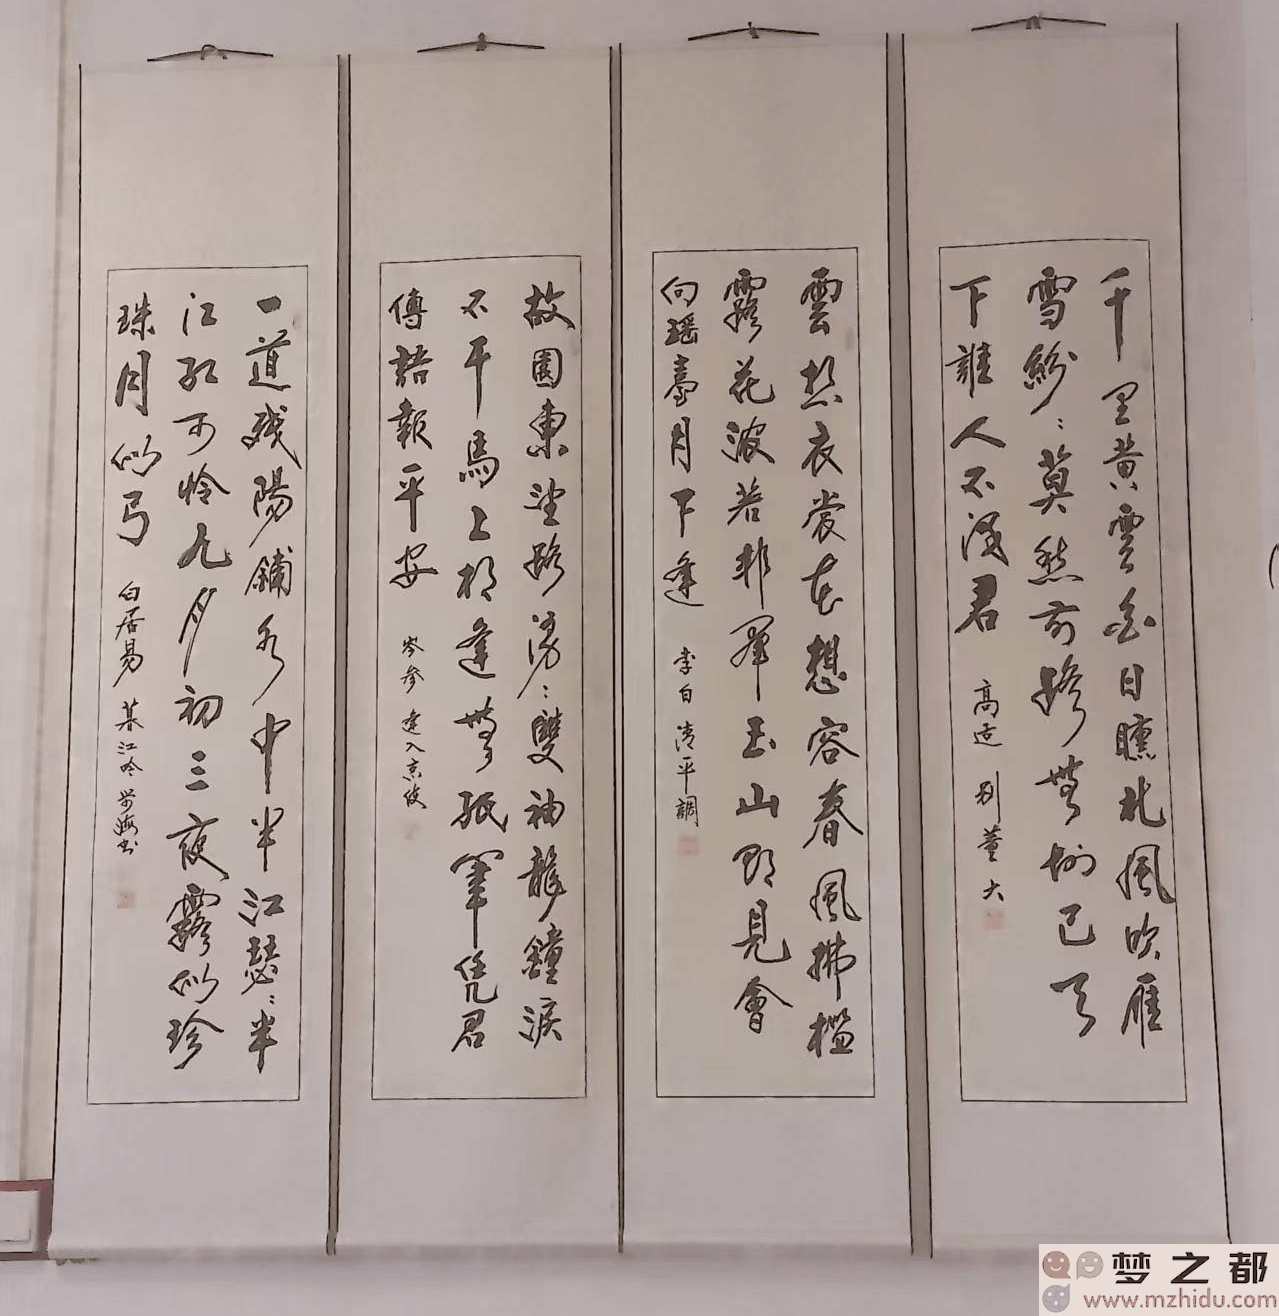 千里黄雲白日曛北風吹雁
雪紛〻莫愁前路無知己天
下誰人不識君 高适 别董大
雲想衣裳花想容春風拂檻
露花浓若非羣玉山頭見會
向瑶臺月下逢 李白 清平調
故園東望路漫〻雙袖龍鐘淚
不干馬上相逢無紙筆凭君
傳語報平安 岑参 逢入京使
一道残陽鋪水中半江瑟〻半
江红可怜九月初三夜露似珍
珠月似弓 白居易 暮江吟
梦之都
www.mzhidu.com